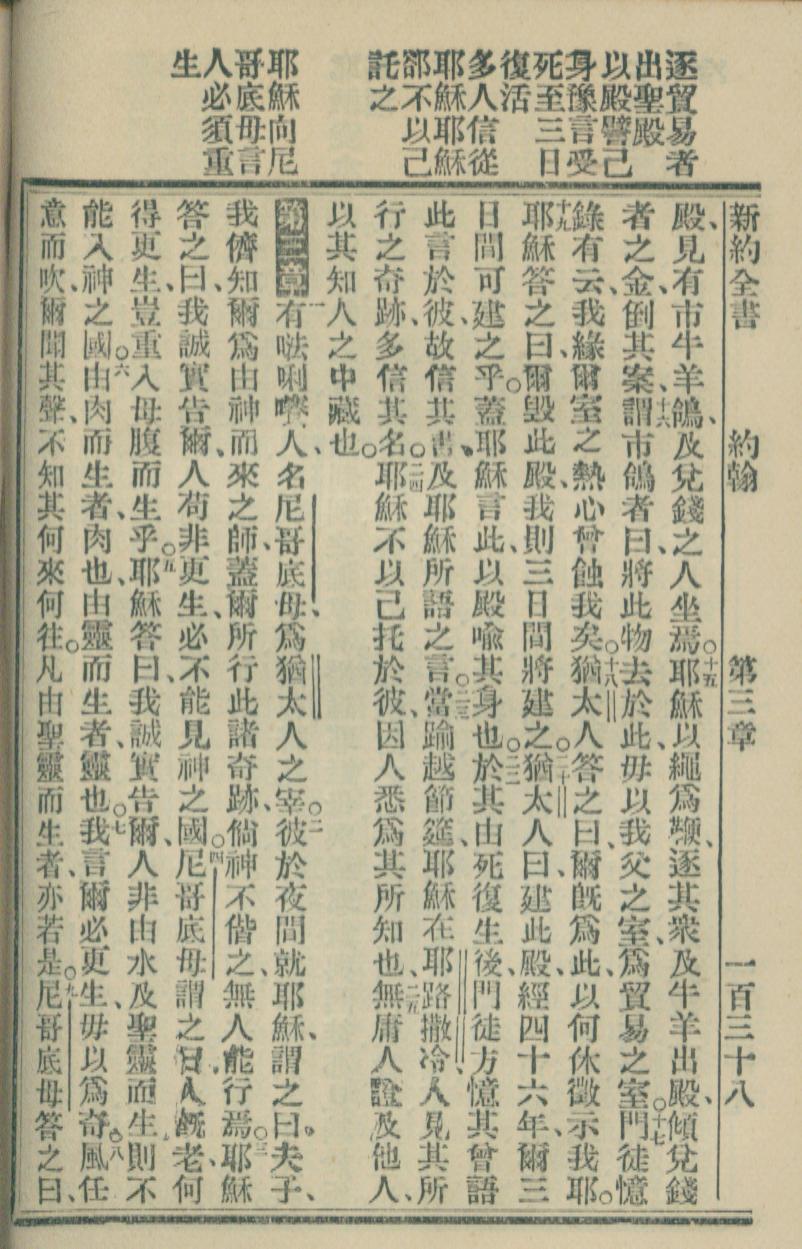 逐貿易者
出聖殿
以殿譬己
身豫言受
死至三日
復活
多人信從
耶穌耶穌
卻不以己
託之
耶穌向尼
哥底母言
人必須重
生
新約全書 約翰 第三章 一百三十八
殿、見有市牛羊鴿、及兌錢之人坐焉。十五耶穌以繩爲鞭、逐其衆及牛羊出殿、傾兌錢
者之金、倒其案、十六謂市鴿者曰、將此物去於此、毋以我父之室、爲貿易之室。十七門徒憶
錄有云、我緣爾室之熱心曾蝕我矣。十八猶太人答之曰、爾旣爲此、以何休徵示我耶。
十九耶穌答之曰、爾毀此殿、我則三日間將建之。二十猶太人曰、建此殿、經四十六年、爾三
日間可建之乎。蓋耶穌言此、以殿喩其身也。二二於其由死復生後、門徒方憶其曾語
此言於彼、故信其書、及耶穌所語之言。二三當踰越節筵、耶穌在耶路撒冷、人見其所
行之奇跡、多信其名。二四耶穌不以己托於彼、因人悉爲其所知也、二五無庸人證及他人、
以其知人之中藏也。
第三章 一有㕸唎㘔人、名尼哥底母、爲猶太人之宰。二彼於夜間就耶穌、謂之曰、夫子、
我儕知爾爲由神而來之師、蓋爾所行此諸奇跡、倘神不偕之、無人能行焉。三耶穌
答之曰、我誠實告爾、人苟非更生、必不能見神之國。四尼哥底母謂之曰、人旣老、何
得更生、豈重入母腹而生乎。五耶穌答曰、我誠實告爾、人非由水及聖靈而生、則不
能入神之國。六由肉而生者、肉也、由靈而生者、靈也。七我言爾必更生、毋以爲奇。八風任
意而吹、爾聞其聲、不知其何來何往。凡由聖靈而生者、亦若是。九尼哥底母答之曰、